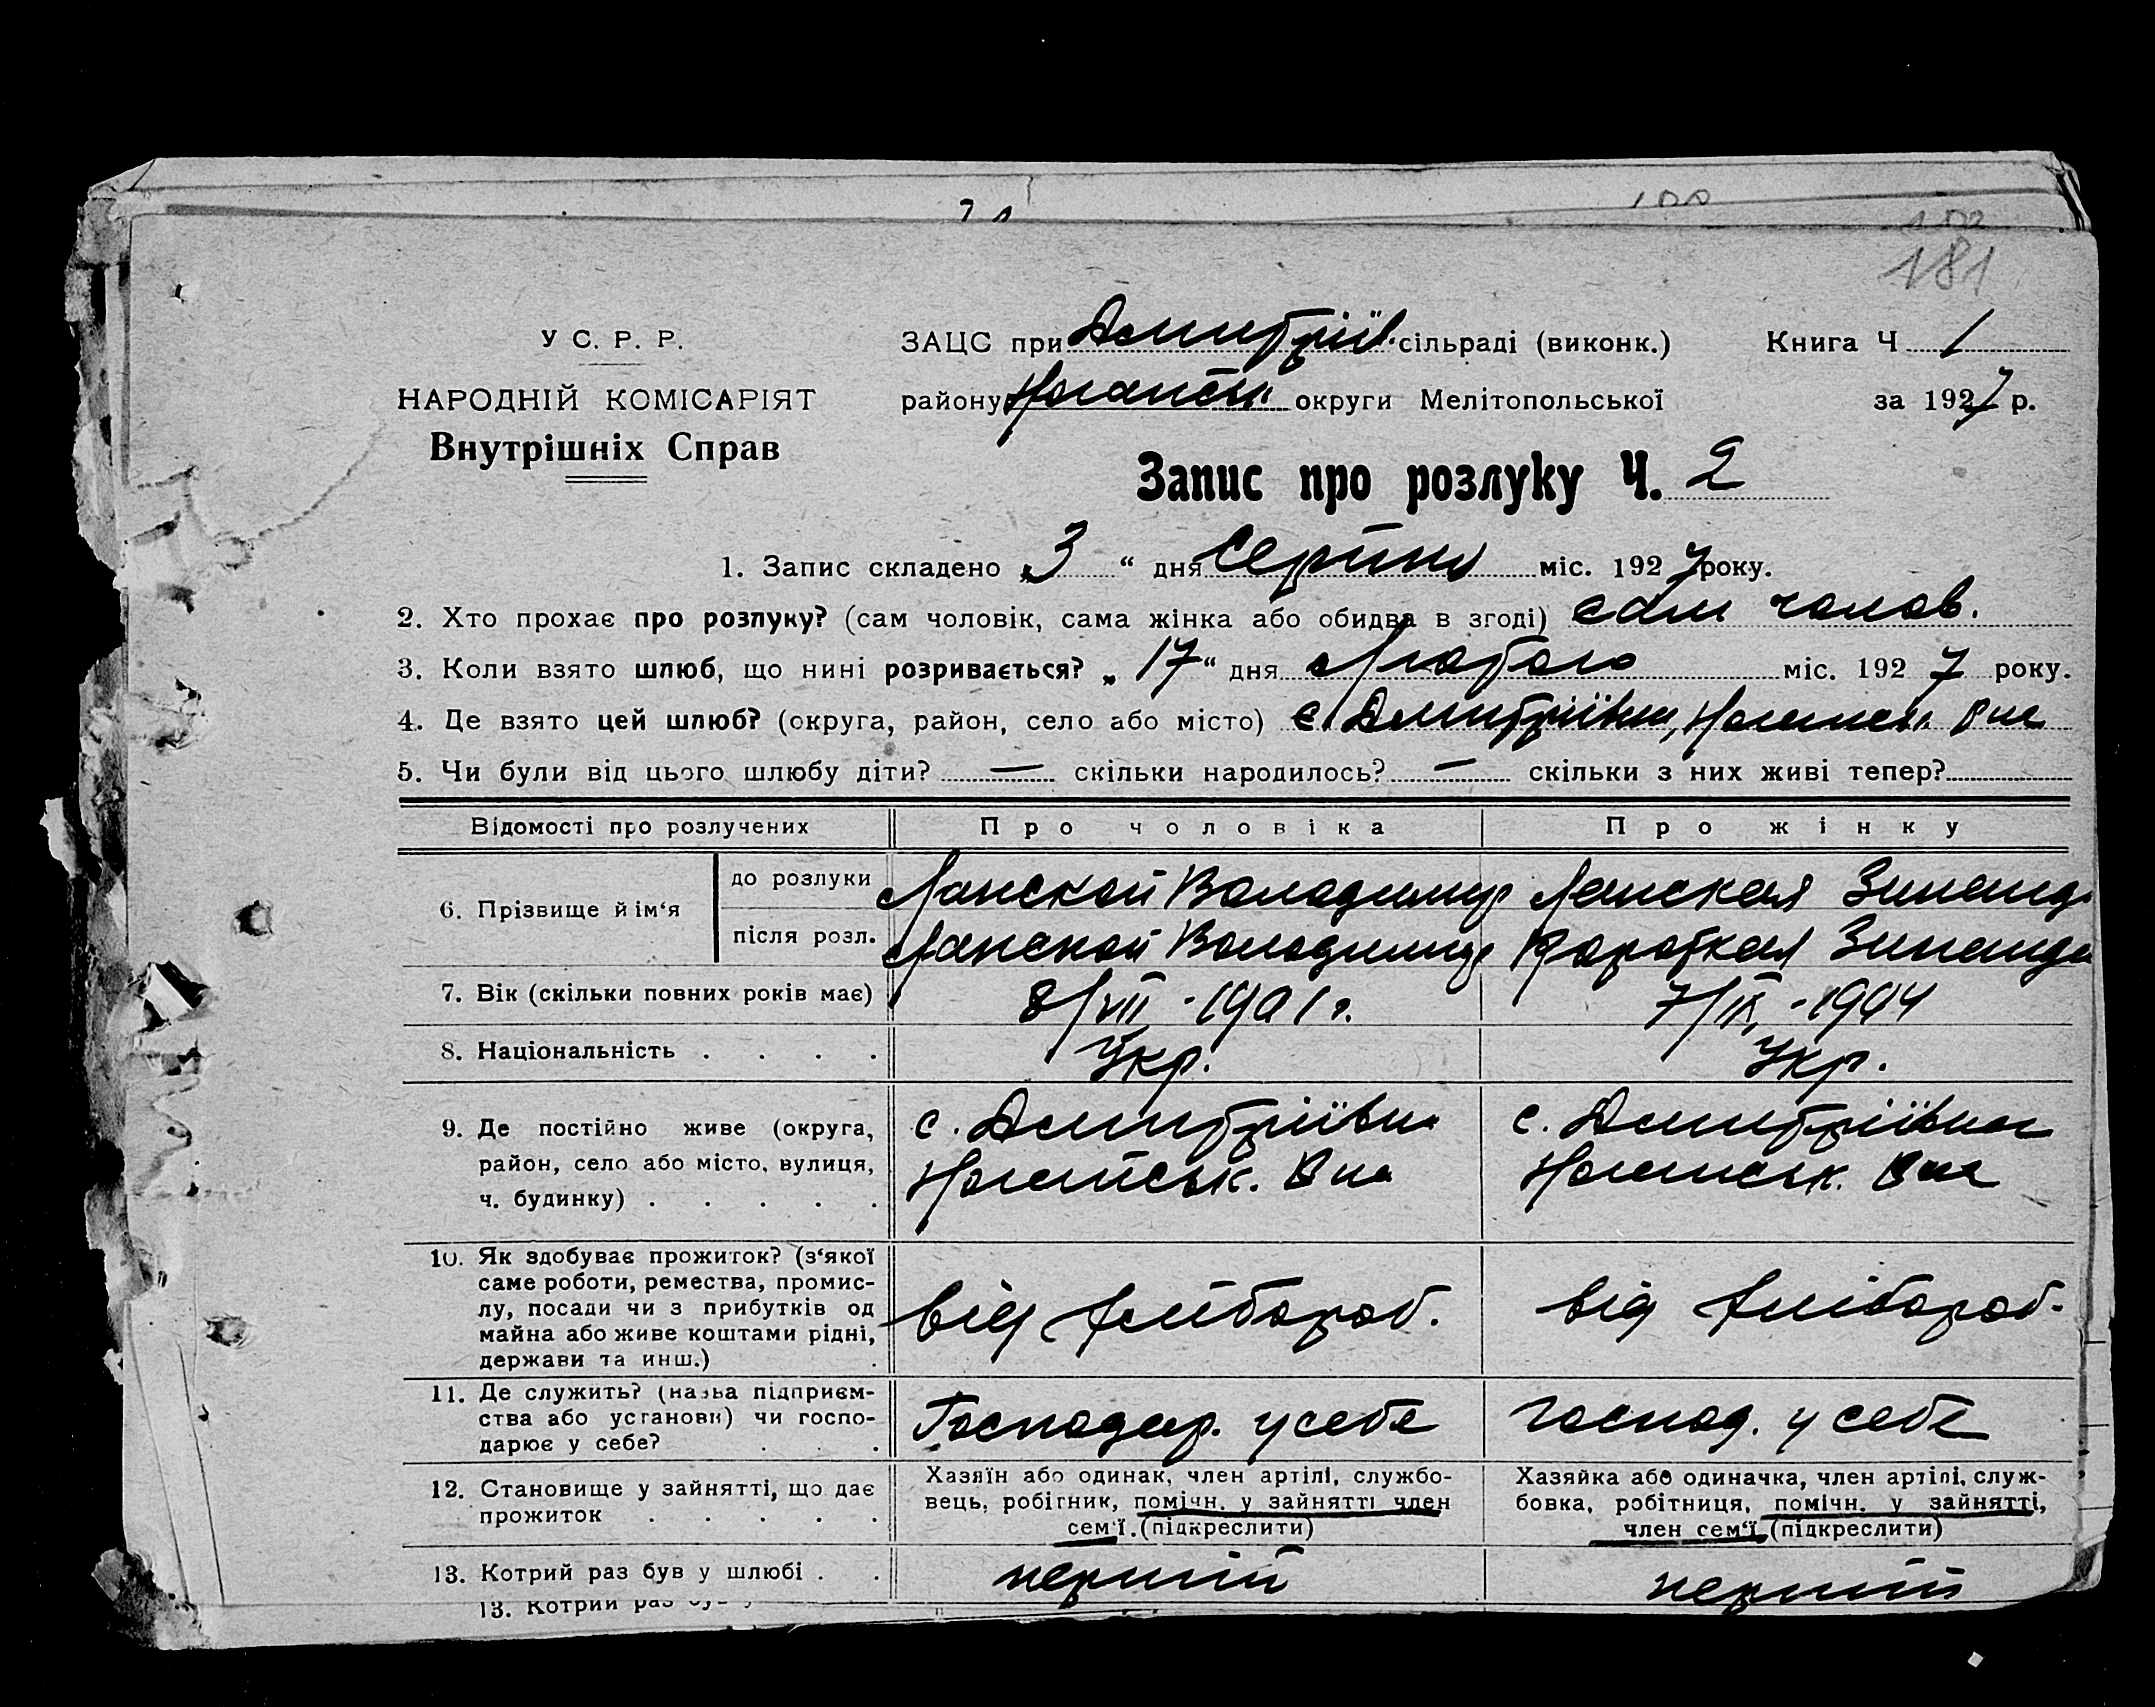 100
102
181
У С. Р. Р.
НАРОДНІЙ КОМІСАРІЯТ
Внутрішніх Справ
ЗАЦС при Дмитріїв. сільраді (виконк.) Книга Ч 1
району Ногайськ округи Мелітопольської за 1927 р.
Запис про розлуку Ч. 2
1. Запис складено „3“ дня Серпня міс. 1927 року.
2. Хто прохає про розлуку? (сам чоловік, сама жінка або обидва в згоді) сам чолов.
3. Коли взято шлюб, що нині розривається? „17“ дня Лютого міс. 1927 року.
4. Де взято цей шлюб? (округа, район, село або місто) с. Дмитріївка, Ногайськ. Р на
5. Чи були від цього шлюбу діти? — скільки народилось? — скільки з них живі тепер?
Відомості про розлучених Про чоловіка Про жінку
6. Прізвище й ім‘я
до розлуки Ланской Володимир Ланская Зинаид
після розл. Ланской Володимир Короткая Зинаида
7. Вік (скільки повних років має) 8/VII - 1901 г. 7/IX, - 1904
8. Національність . . . . Укр. Укр.
9. Де постійно живе (округа, район, село або місто, вулиця, ч. будинку) . . . . .
с. Дмитріївка
Ногайськ. Р на
с. Дмитріївка
Ногайськ. Р на
10. Як здобуває прожиток? (з‘якої
саме роботи, ремества, промис-
лу, посади чи з прибутків од
майна або живе коштами рідні,
держави та инш.) .
від хлібороб. від хлібороб.
11. Де служить? (назва підприєм-
ства або установи) чи госпо-
дарює у себе? . . .
Господар. у себе господ. у себе
12. Становище у зайнятті, що дає
прожиток . . . . .
Хазяїн або одинак, член артілі, службо-
вець, робітник, помічн. у зайнятті член
сем‘ї. (підкреслити)
Хазяйка або одиначка, член артілі, служ-
бовка, робітниця, помічн. у зайнятті,
член сем‘ї (підкреслити)
13. Котрий раз був у шлюбі . . перший перший
13. Котрий раз